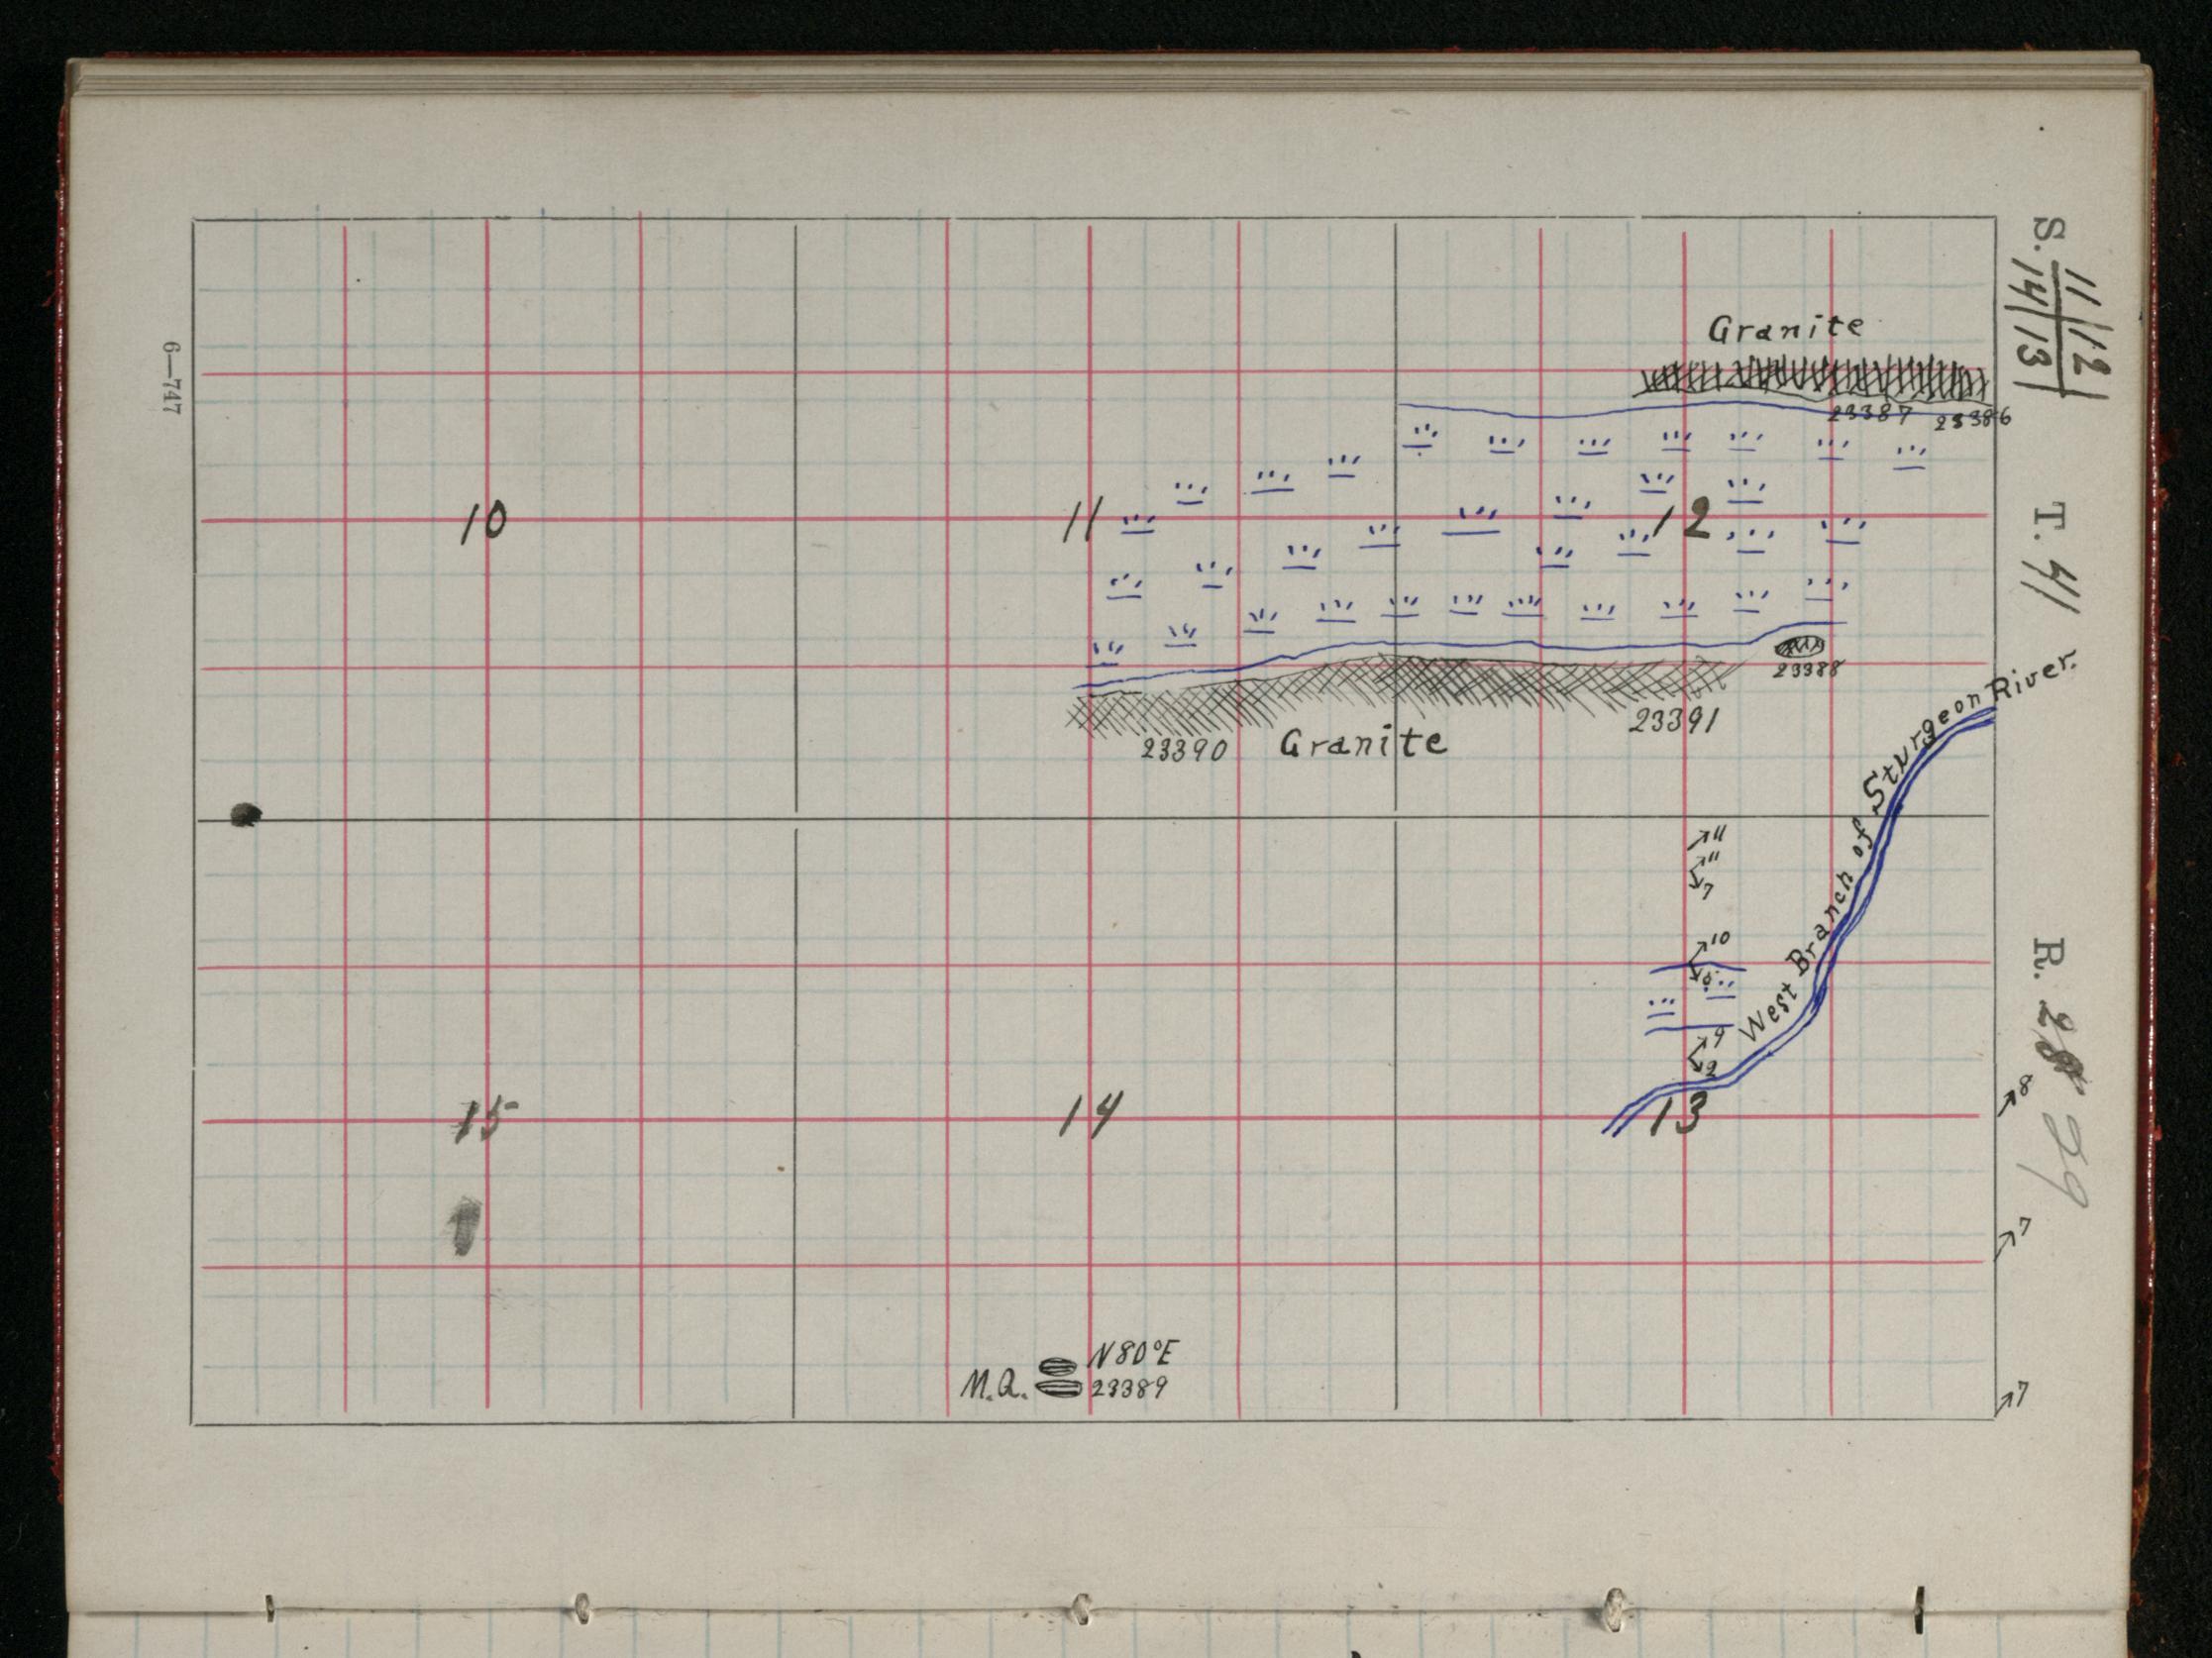 S. 11 / 12
14 / 13
T. 41
R. 28 29
6—747
Granite
23387 23386
10
11
12
23388
23391
23390 Granite
West Branch of Sturgeon River.
11
11
7
10
9
2
15
14
13
8
7
7
N 80° E
M.Q. 23389